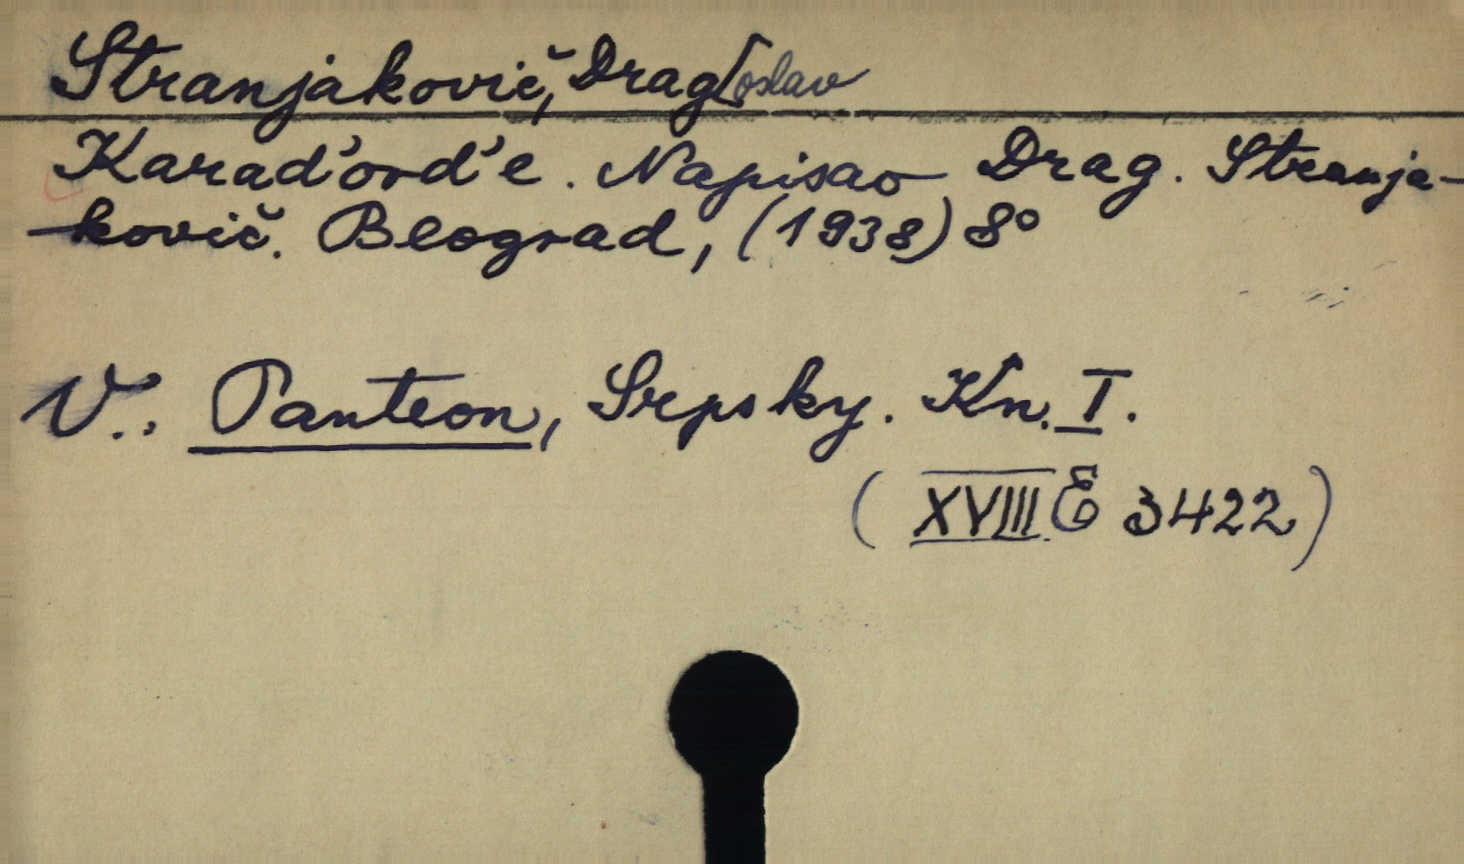 Stranjakovič, Drag[oslav
Karaďorďe. Napisao Drag. Stranja-
-kovič. Beograd, (1938) 8°
V.: Panteon, Srpsky. Kn. I.
(XVIII. E 3422)